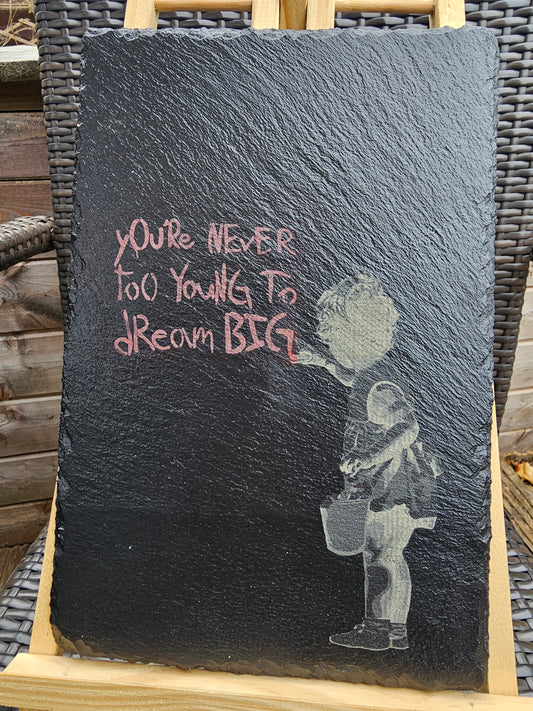 yOU'Re NEVER
TOO YOUNG TO
dReam BIG